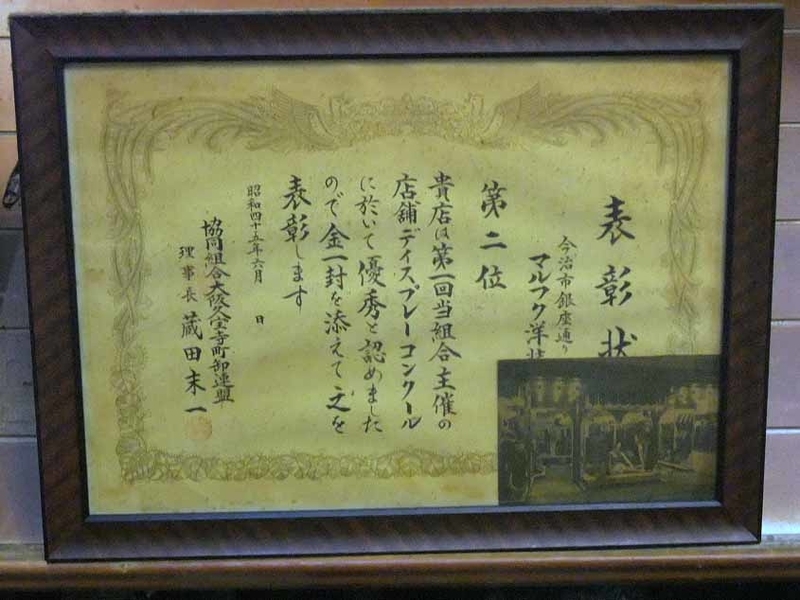 表彰状
今治市銀座通り
マルフク洋装
第二位
貴店は第一回当組合主催の
店舗デイスプレーコンクール
に於いて優秀と認めました
ので金一封を添えて之を
表彰します
昭和四十五年六月 日
協同組合大阪久宝寺町卸連盟
理事長 蔵田末一